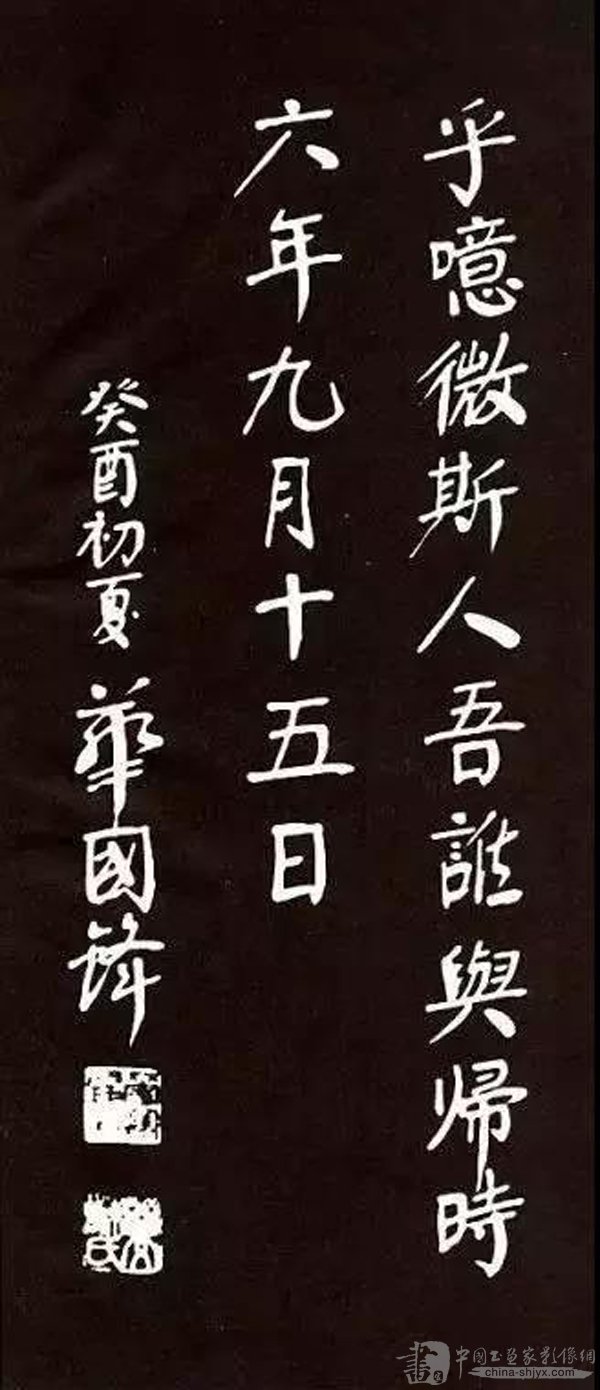 乎噫微斯人吾誰與歸時
六年九月十五日
癸酉初夏 華國鋒
書 中国书画家影像網
china-shjyx.com